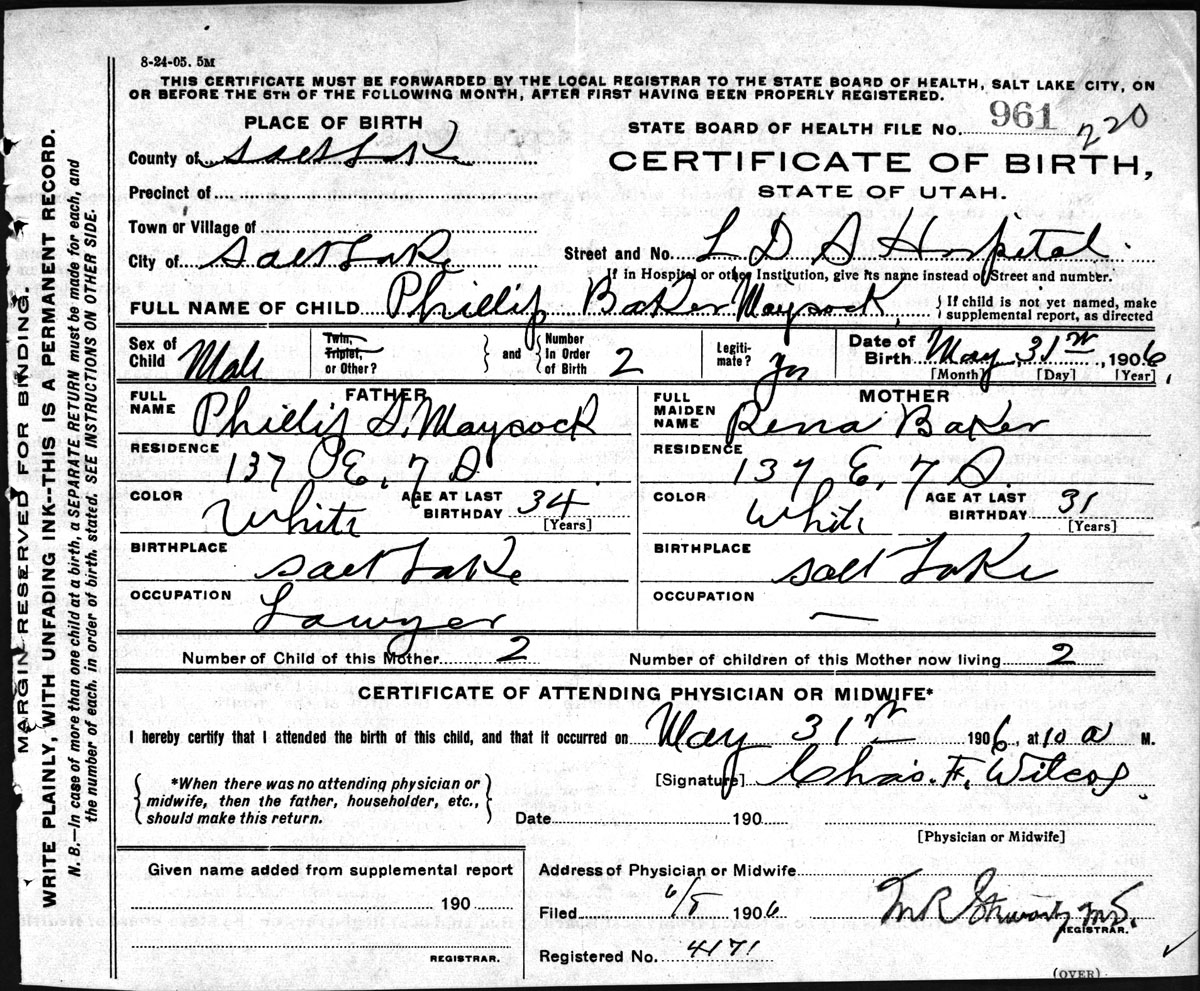 8-24-05. 5M
THIS CERTIFICATE MUST BE FORWARDED BY THE LOCAL REGISTRAR TO THE STATE BOARD OF HEALTH, SALT LAKE CITY, ON
OR BEFORE THE 5TH OF THE FOLLOWING MONTH, AFTER FIRST HAVING BEEN PROPERLY REGISTERED.
PLACE OF BIRTH
STATE BOARD OF HEALTH FILE No. 961 220
County of Salt Lak
CERTIFICATE OF BIRTH,
STATE OF UTAH.
Precinct of
Town or Village of
City of Salt Lake
Street and No. L D S Hospital.
If in Hospital or other Institution, give its name instead of Street and number.
FULL NAME OF CHILD Phillip Baker Maycock,
{If child is not yet named, make
supplemental report, as directed
Sex of Child Male
Twin, Triplet, or Other?
and
Number In Order of Birth 2
Legiti-mate? yes
Date of Birth May 31st, 1906,
[Month] [Day] [Year]
FATHER
FULL NAME Phillip S. Maycock
RESIDENCE 137 E, 7 S.
COLOR White
AGE AT LAST BIRTHDAY 34
[Years]
BIRTHPLACE Salt Lake
OCCUPATION Lawyer
MOTHER
FULL MAIDEN NAME Rena Baker
RESIDENCE 137 E, 7 S.
COLOR White
AGE AT LAST BIRTHDAY 31
[Years]
BIRTHPLACE Salt Lake
OCCUPATION —
Number of Child of this Mother 2
Number of children of this Mother now living 2
CERTIFICATE OF ATTENDING PHYSICIAN OR MIDWIFE*
I hereby certify that I attended the birth of this child, and that it occurred on May 31st 1906, at 10 a M.
*When there was no attending physician or
midwife, then the father, householder, etc.,
should make this return.
[Signature] Chas. F. Wilcox.
Date 190
[Physician or Midwife]
Given name added from supplemental report
190
REGISTRAR.
Address of Physician or Midwife
Filed 6/5 1906
M R Stewart, M.D.
REGISTRAR.
Registered No. 4171
(OVER)
MARGIN RESERVED FOR BINDING.
WRITE PLAINLY, WITH UNFADING INK--THIS IS A PERMANENT RECORD.
N. B.—In case of more than one child at a birth, a SEPARATE RETURN must be made for each, and
the number of each, in order of birth, stated. SEE INSTRUCTIONS ON OTHER SIDE.